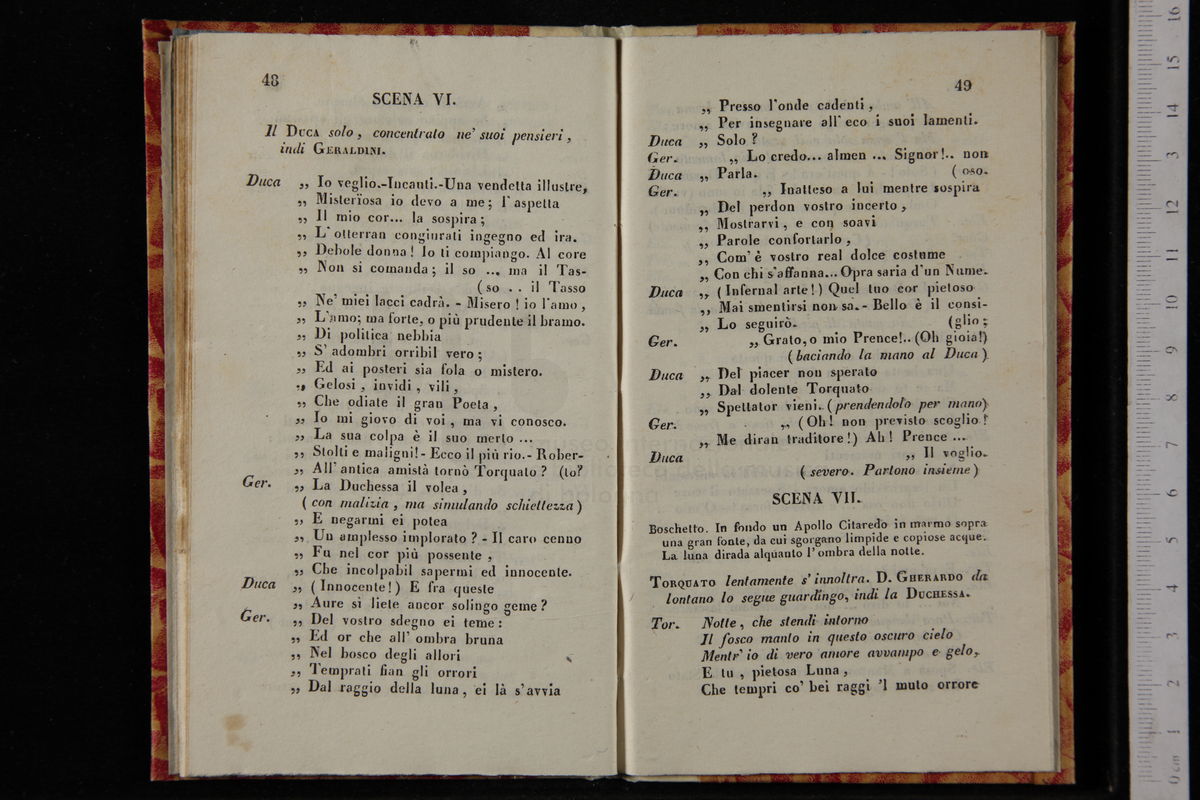 48
SCENA VI.
Il DUCA solo, concentrato ne' suoi pensieri,
indi GERALDINI.
Duca „ Io veglio.-Incanti.-Una vendetta illustre,
„ Misterïosa io devo a me; l'aspetta
„ Il mio cor... la sospira;
„ L'otterran congiurati ingegno ed ira.
„ Debole donna! Io ti compiango. Al core
„ Non si comanda; il so ... ma il Tas-
(so . . il Tasso
„ Ne' miei lacci cadrà. - Misero! io l'amo,
„ L'amo; ma forte, o più prudente il bramo.
„ Di politica nebbia
„ S'adombri orribil vero;
„ Ed ai posteri sia fola o mistero.
„ Gelosi, invidi, vili,
„ Che odiate il gran Poeta,
„ Io mi giovo di voi, ma vi conosco.
„ La sua colpa è il suo merto ...
„ Stolti e maligni! - Ecco il più rio. - Rober-
„ All'antica amistà tornò Torquato? (to?
Ger. „ La Duchessa il volea,
(con malizia, ma simulando schiettezza)
„ E negarmi ei potea
„ Un amplesso implorato? - Il caro cenno
„ Fu nel cor più possente,
„ Che incolpabil sapermi ed innocente.
Duca „ (Innocente!) E fra queste
„ Aure sì liete ancor solingo geme?
Ger. „ Del vostro sdegno ei teme:
„ Ed or che all'ombra bruna
„ Nel bosco degli allori
„ Temprati fian gli orrori
„ Dal raggio della luna, ei là s'avvia
49
„ Presso l'onde cadenti,
„ Per insegnare all'eco i suoi lamenti.
Duca „ Solo?
Ger. „ Lo credo... almen ... Signor!.. non
Duca „ Parla. (oso.
Ger. „ Inatteso a lui mentre sospira
„ Del perdon vostro incerto,
„ Mostrarvi, e con soavi
„ Parole confortarlo,
„ Com'è vostro real dolce costume
„ Con chi s'affanna... Opra saria d'un Nume.
Duca „ (Infernal arte!) Quel tuo cor pietoso
„ Mai smentirsi non sa. - Bello è il consi-
„ Lo seguirò. (glio;
Ger. „ Grato, o mio Prence!.. (Oh gioia!)
(baciando la mano al Duca)
Duca „ Del piacer non sperato
„ Dal dolente Torquato
„ Spettator vieni. (prendendolo per mano)
Ger. „ (Oh! non previsto scoglio!
„ Me diran traditore!) Ah! Prence ...
Duca „ Il voglio.
(severo. Partono insieme)
SCENA VII.
Boschetto. In fondo un Apollo Citaredo in marmo sopra
una gran fonte, da cui sgorgano limpide e copiose acque.
La luna dirada alquanto l'ombra della notte.
TORQUATO lentamente s'innoltra. D. GHERARDO da
lontano lo segue guardingo, indi la DUCHESSA.
Tor. Notte, che stendi intorno
Il fosco manto in questo oscuro cielo
Mentr'io di vero amore avvampo e gelo,
E tu, pietosa Luna,
Che tempri co' bei raggi 'l muto orrore